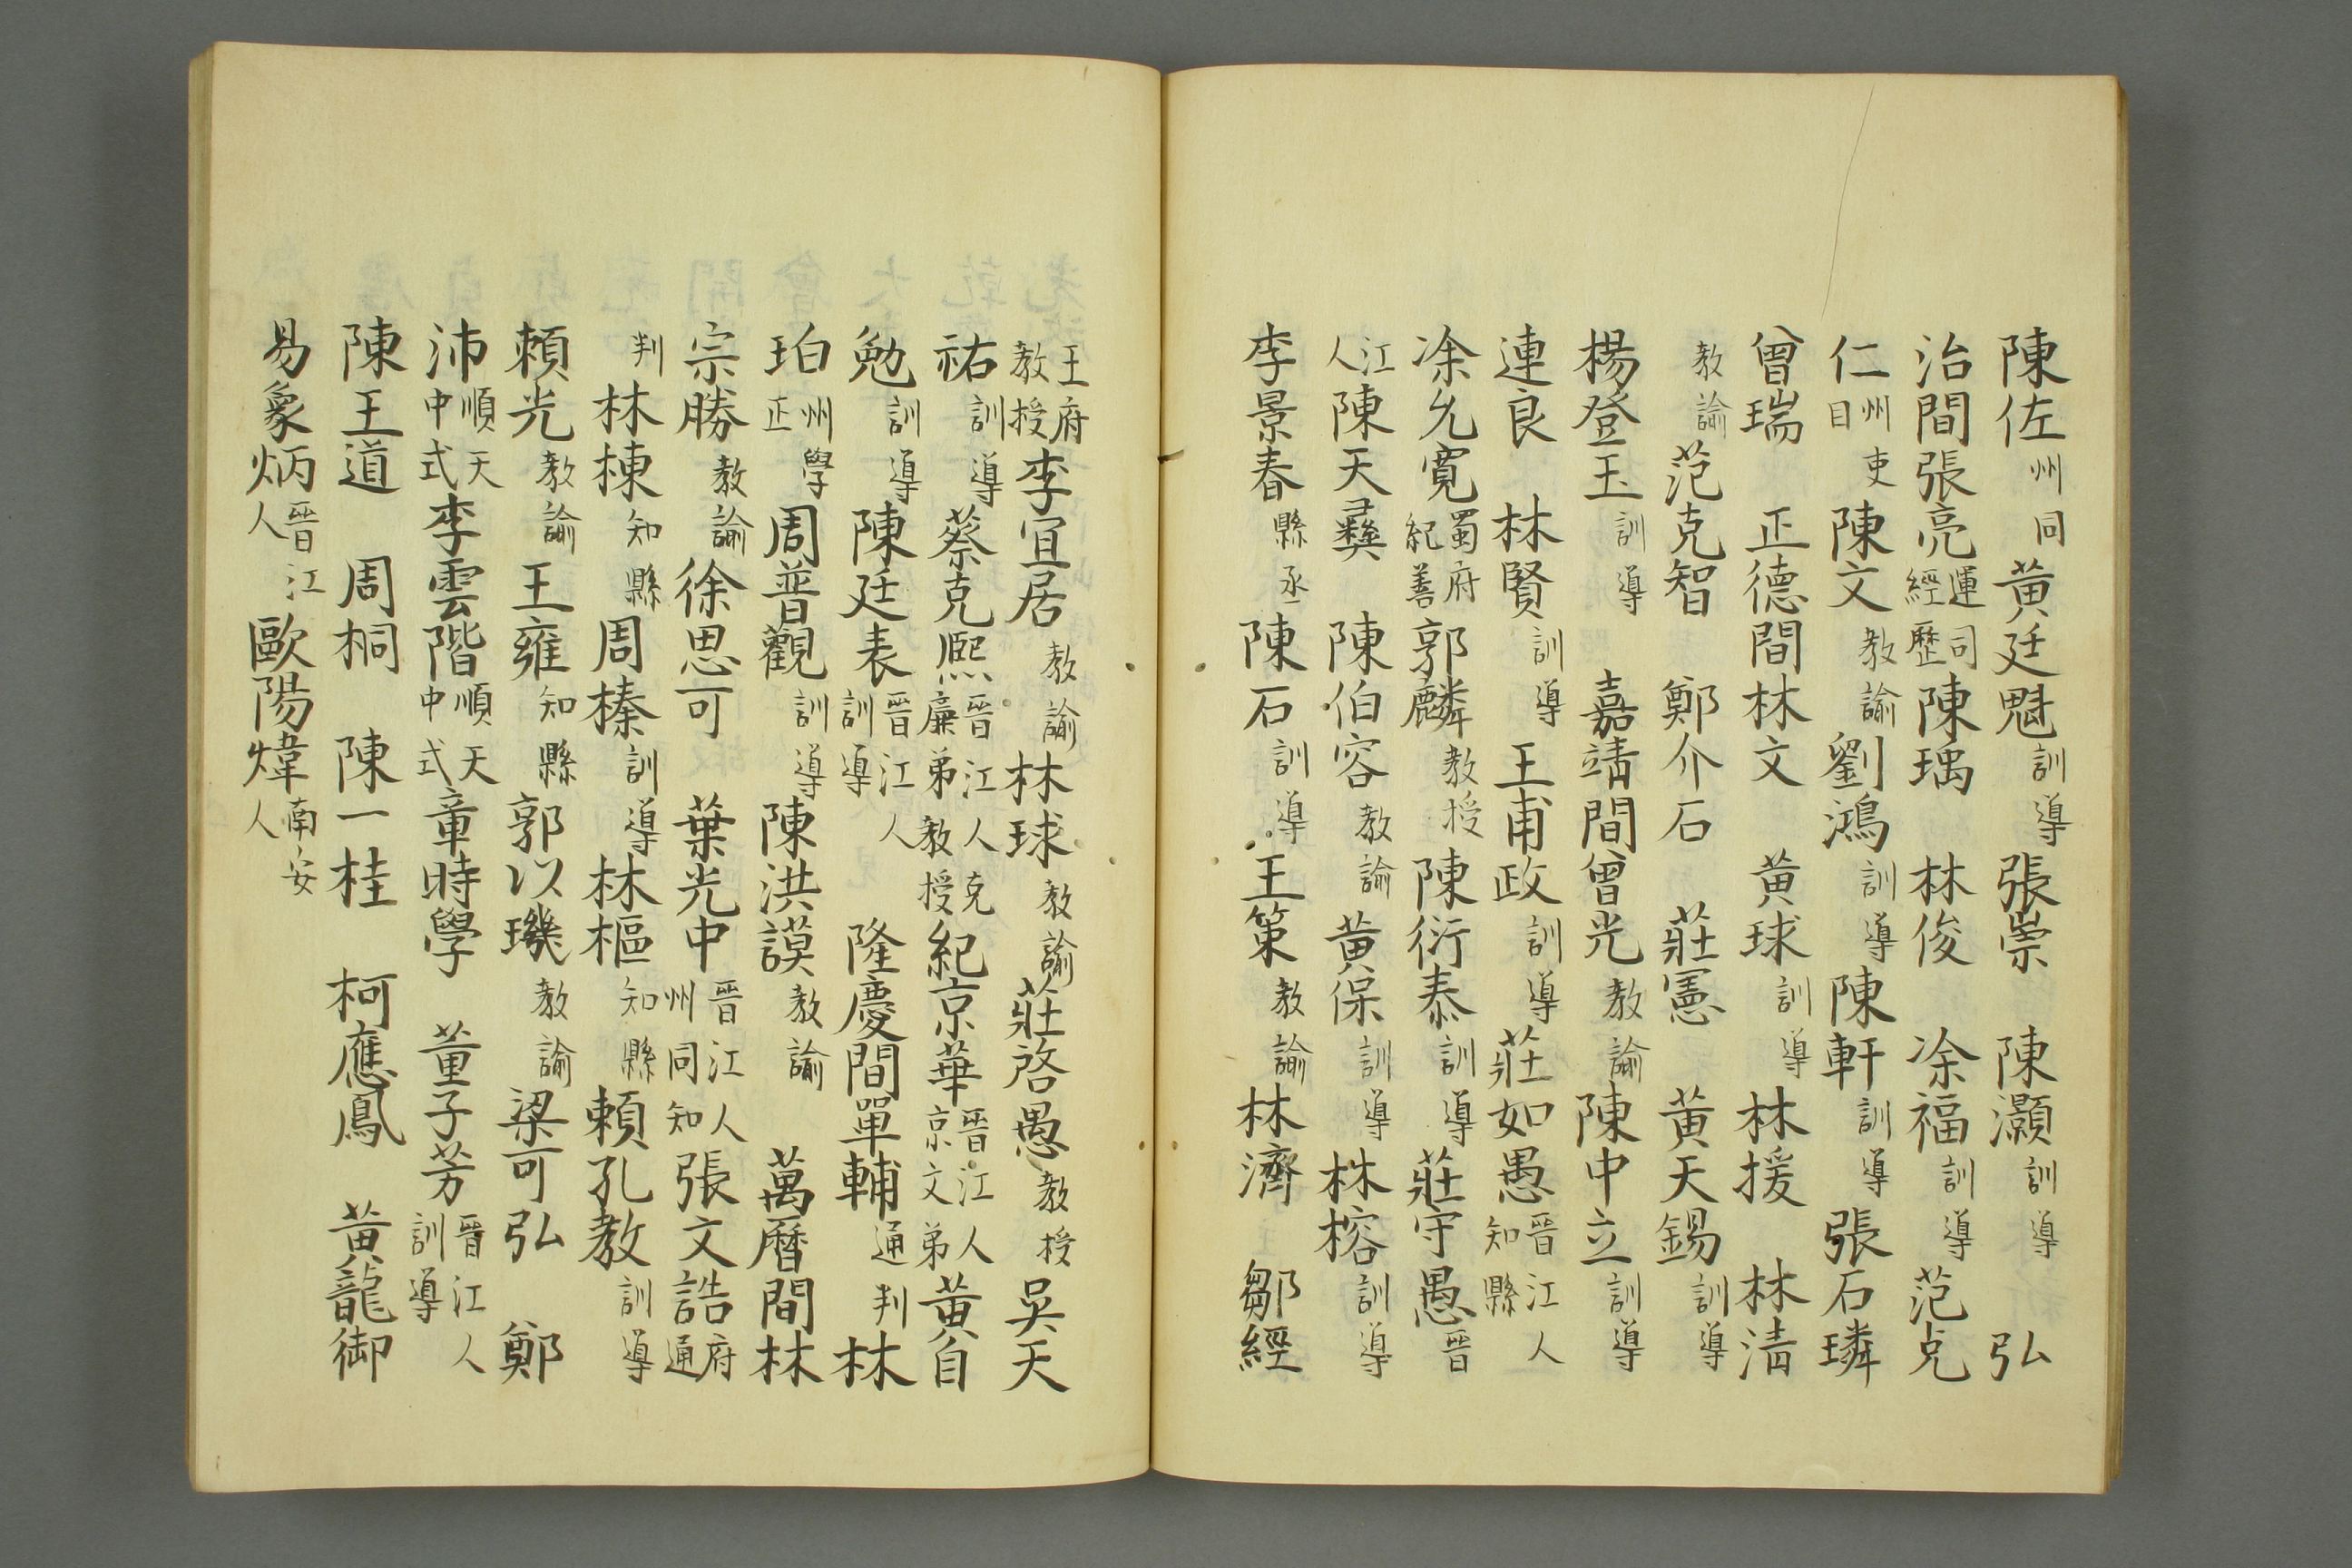 陳佐州同黃廷魁訓導張崇　陳灝訓導　弘
治間張亮運司經歷陳瑀　林俊　凃福訓導范克
仁州吏目陳文教諭劉鴻訓導陳軒訓導張石璘
曾瑞　正德間林文　黃球訓導林援　林清
教諭范克智　鄭介石　莊憲　黃天錫訓導
楊登玉訓導　嘉靖間曾光教諭陳中立訓導
連良　林賢訓導王甫政訓導莊如愚晉江人知縣
凃允寬蜀府紀善郭麟教授陳衍泰訓導莊守愚晉
江人陳天彝　陳伯容教諭黃保訓導林榕訓導
李景春縣丞陳石訓導王策教諭林濟　鄒經
王府教授李宜居教諭林球教諭莊啓愚教授吳天
祐訓導蔡克熙晉江人克廉弟教授紀京華晉江人京文弟黃自
勉訓導陳廷表晉江人訓導　隆慶間單輔通判林
珀州學正周普觀訓導陳洪謨教諭　萬曆間林
宗勝教諭徐思可　葉光中晉江人州同知張文誥府通
判林棟知縣周榛訓導林樞知縣賴孔教訓導
賴光教諭王雍知縣郭以璣教諭梁可弘　鄭
沛順天中式李雲階順天中式章時學　董子芳晉江人訓導
陳王道　周桐　陳一桂　柯應鳳　黃龍御
易象炳晉江人歐陽煒南安人